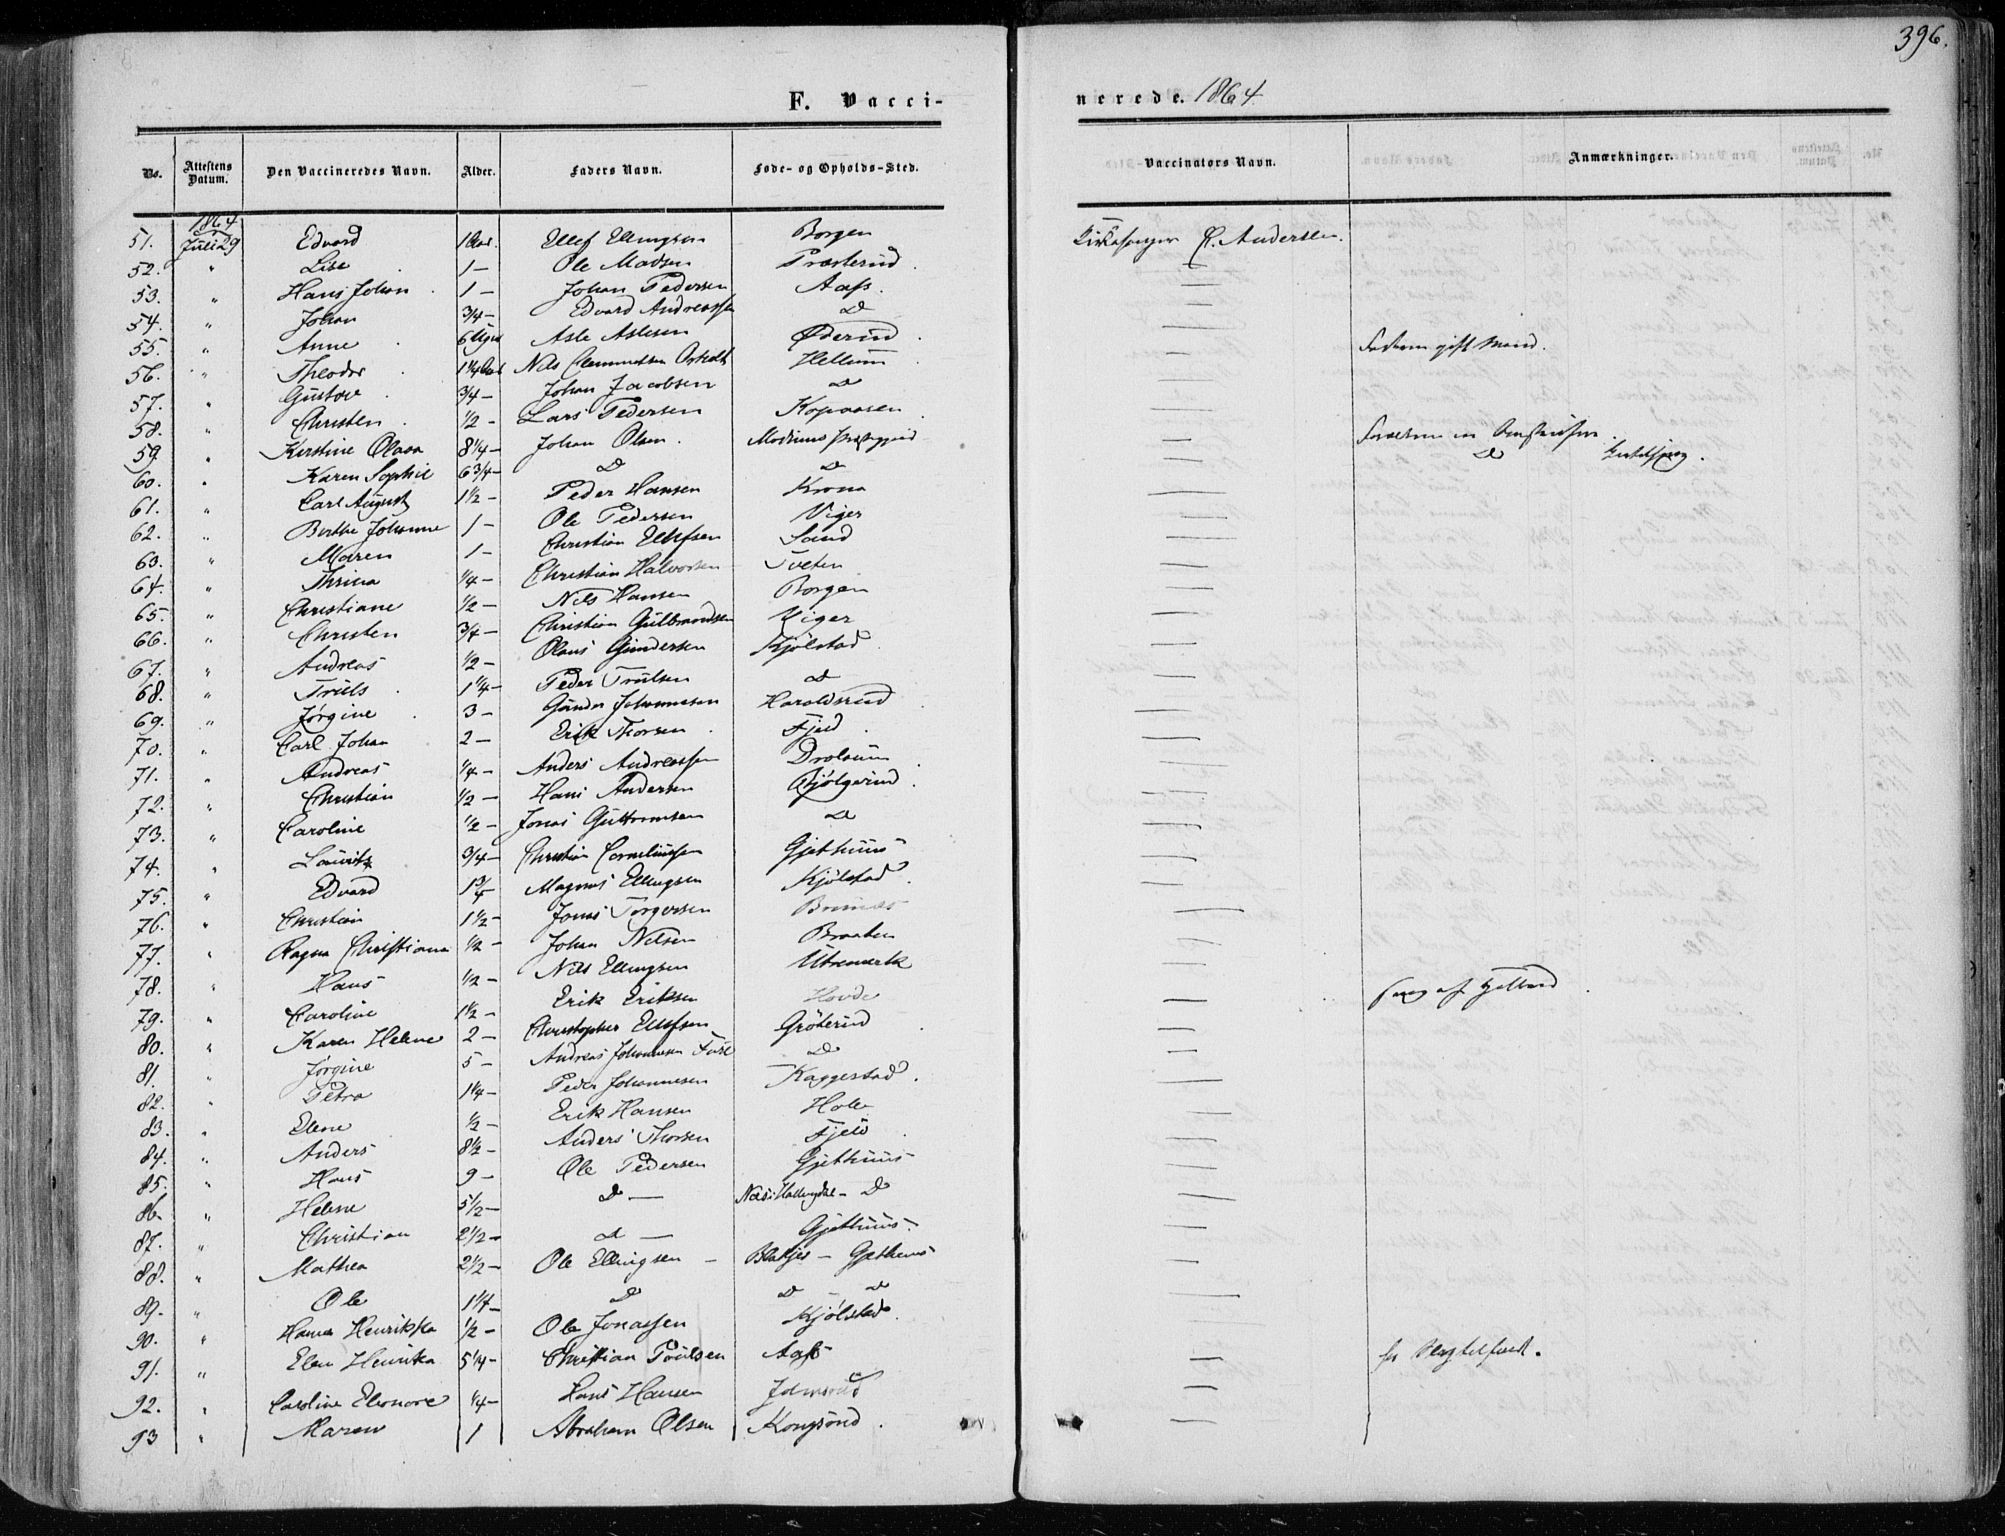 396.
F. Vaccinerede. 1864
No. Attestens Datum. Den Vaccineredes Navn. Alder. Faders Navn. Føde- og Opholds-Sted. Vaccinators Navn. Anmærkninger.
1864
51. Juli 29 Edvard 1 Aar. Ellef Ellingsen Borgen Kirkesanger C. Andersen.
52. " Lise 1 — Ole Madsen Præsterud —
53. " Hans Johan 1 — Johan Pedersen Aass. —
54. " Johan 3/4 — Edvard Andreassen D —
55. " Anne 6 Uger Asle Aslesen Øderud —
56. " Theodor 1 1/4 Aar Nils Clemmetsen Hellum —
57. " Gustav 3/4 — Johan Jacobsen D —
58. " Christen 1/2 — Lars Pedersen Kopaasen —
59. " Kirstine Olava 8 1/4 — Johan Olsen. Modums —
60. " Karen Sophie 6 3/4 — D D — D
61. " Carl August 1 1/2 — Peder Hansen Krona —
62. " Berthe Johanne 1 — Ole Pedersen Viger —
63. " Maren 1 — Christian Ellefsen Sand —
64. " Thrina 1/4 — Christian Halvorsen Tveten —
65. " Christiane 1/2 — Nils Hansen Borgen —
66. " Christen 3/4 — Christian Gulbrandsen Viger —
67. " Andreas 1/2 — Olaus Gundersen Kjølstad —
68. " Truls 1 1/4 — Peder Trulsen D —
69. " Jørgine 3 — Gunder Johannesen Haraldsrud —
70. " Carl Johan 2 — Erik Thorsen Fjeld —
71. " Andreas 1/4 — Anders Andreassen Drolsum —
72. " Christian 1/2 — Hans Andersen Bjølgerud —
73. " Caroline 1/2 — Jonas Guttormsen D —
74. " Lauritz 3/4 — Christian Corneliussen Gjethuus —
75. " Edvard 1 3/4 Magnus Ellingsen Kjølstad —
76. " Christian 1 1/2 — Jonas Torgersen —
77. " Ragna Christiana 1/2 — Johan Nilsen Braaten —
78. " Hans 1/2 — Nils Ellingsen Utenmark —
79. " Caroline 1 1/2 — Erik Eriksen Hovde —
80. " Karen Helene 2 — Christopher Ellefsen Grøterud —
81. " Jørgine 5 — Andreas Johannesen D —
82. " Petra 1 1/4 — Peder Johannesen Kaggestad —
83. " Elene 1/2 — Erik Hansen Hole —
84. " Anders 8 1/2 — Anders Thorsen Fjeld —
85. " Hans 9 — Ole Pedersen Gjethuus —
86. " Helene 5 1/2 — D — Næs i Hallingdal — D —
87. " Christian 2 1/2 — D — Gjethuus —
88. " Mathea 2 1/2 — Ole Ellingsen — Gjethuus —
89. " Ole 1 1/4 — D D — D —
90. " Hanna Henrikka 1/2 — Ole Jonassen Kjølstad —
91. " Elen Henrika 5 1/4 — Christian Poulsen Aass —
92. " Caroline Eleonore 1/4 — Hans Hansen —
93 " Maren 1 Abraham Olsen Kongsrud. —